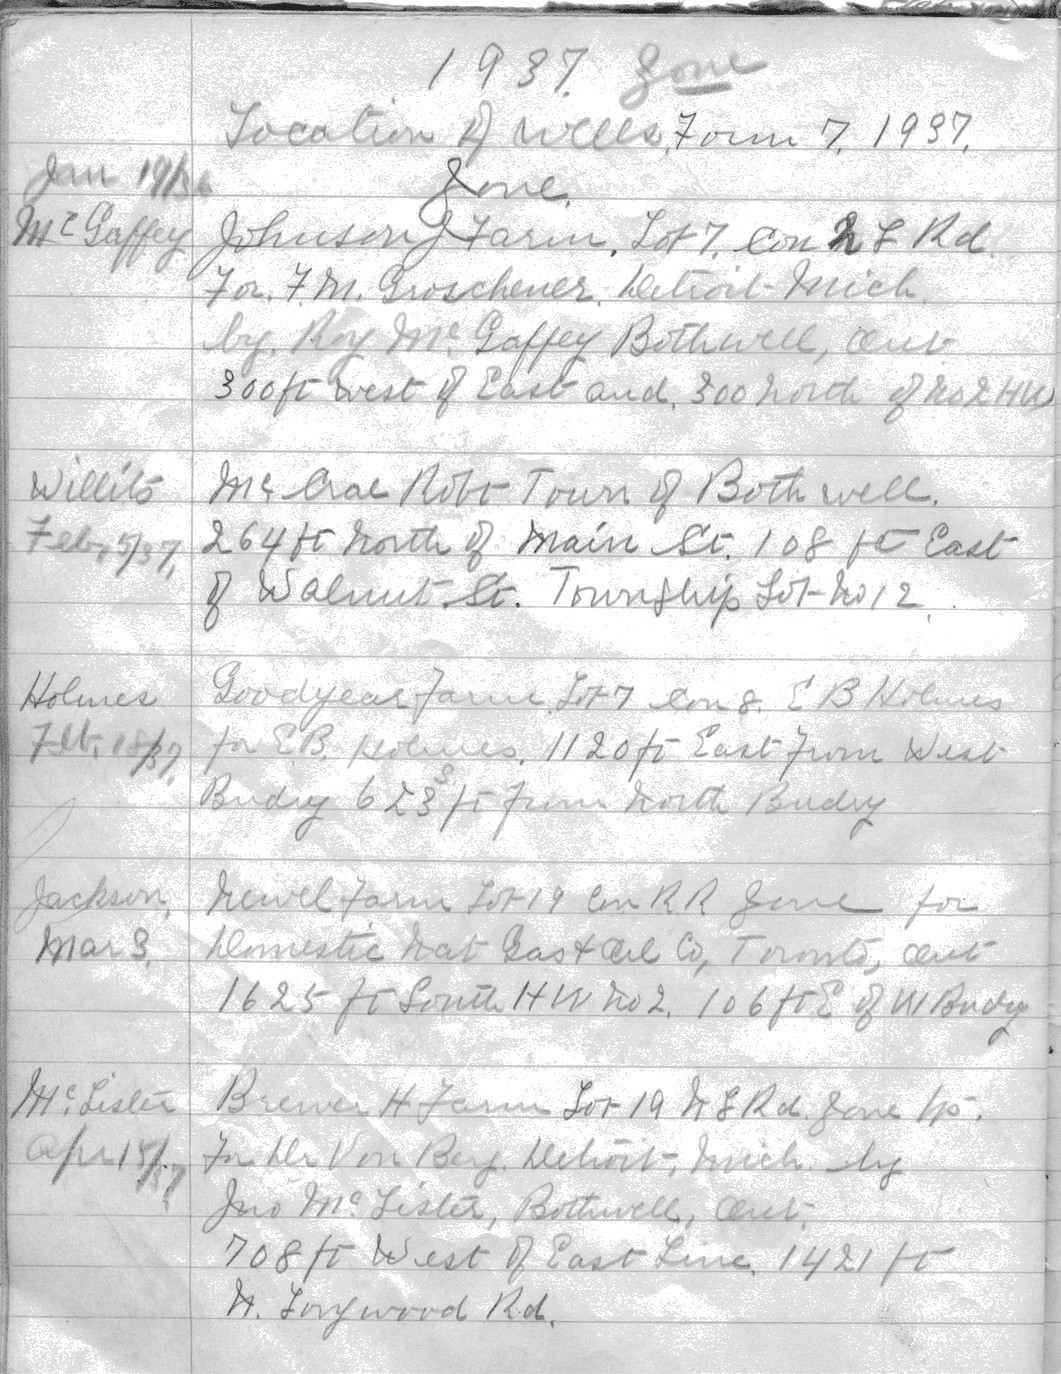 1937. Zone
Location of Wells, Form 7, 1937.
Jan 19/
Zone.
McGaffey Johnson J Farm, Lot 7, Con 2 L Rd.
For. F.M. Groschener. Detroit Mich
by. Roy McGaffey Bothwell, Ont
300 ft west of East and, 300 North of No 2 HW
Willits McCrae Robt Town of Bothwell.
Feb, 5/37, 264 ft North of Main St. 108 ft East
of Walnut St. Township Lot No 12.
Holmes Goodyear Farm, Lot 7 Con 8. E B Holmes
Feb. 18/37. for E.B. Holmes. 1120 ft East from West
Bndry 623 ft from North Bndry
Jackson, Newel Farm Lot 19 Con R.R Zone for
Mar 3. Domestic Nat Gas & Oil Co, Toronto, Ont
1625 ft South HW No 2. 106 ft E of W Bndry
Mc.Lister Brewer H Farm Lot 19 N L Rd. Zone
Apr 15/37. For Dr Von Berg. Detroit, Mich. by
Jno McLister, Bothwell, Ont.
708 ft West of East Line, 1421 ft
N. Longwood Rd.